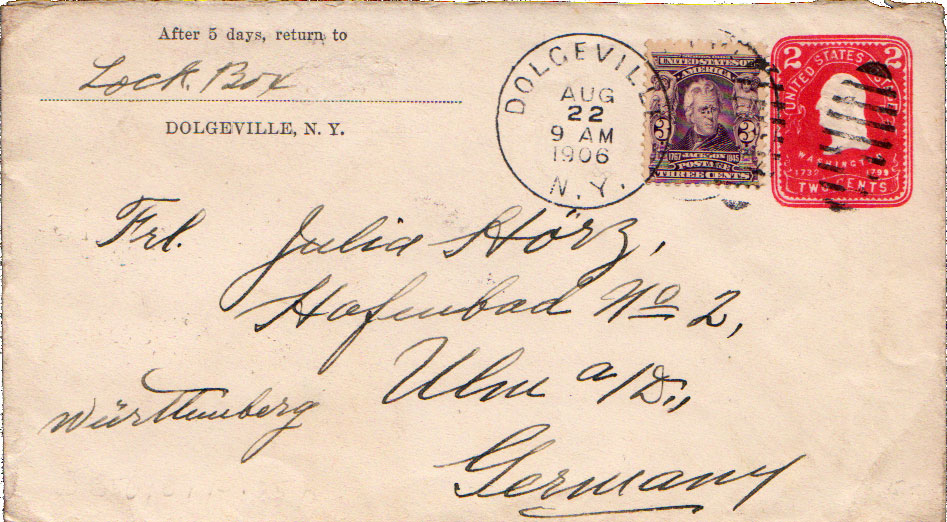 After 5 days, return to
Lock. Box
DOLGEVILLE, N. Y.
DOLGEVILLE
AUG
22
9 AM
1906
N.Y.
UNITED STATES OF
AMERICA
3 3
1767 JACKSON 1845
POSTAGE
THREE CENTS
2 2
UNITED STATES
WASHINGTON
1732 1799
TWO CENTS
Frl. Julia Störz,
Hafenbad No 2,
Ulm a/D.,
Württemberg
Germany